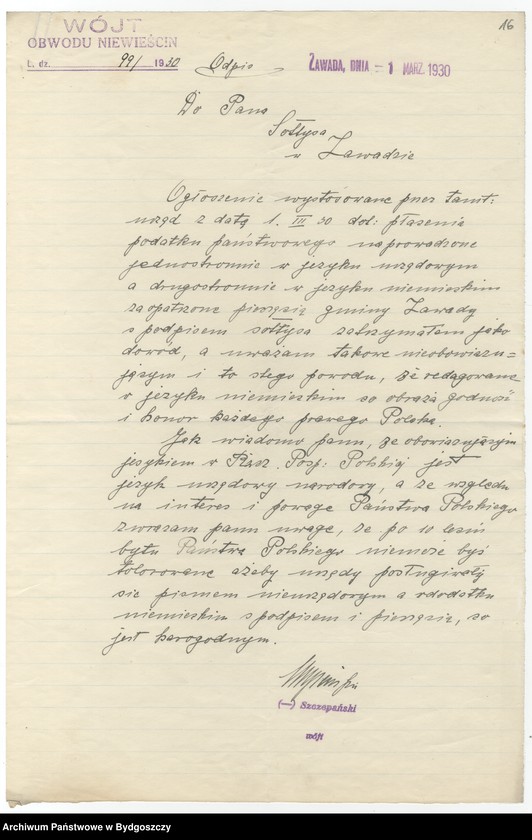 16
WÓJT
OBWODU NIEWIEŚCIN
L. dz. 99/ 1930 Odpis
ZAWADA, DNIA - 1 MARZ. 1930
Do Pana
Sołtysa
w Zawadzie
Ogłoszenie wystosowane przez tamt:
urząd z datą 1. III 30 dot: płacenia
podatku państwowego naprowadzone
jednostronnie w języku urzędowym
a drugostronnie w języku niemieckim
zaopatrzone pieczęcią gminy Zawady
i podpisem sołtysa zatrzymałem jako
dowód, a uważam takowe nieobowiązu=
jącym i to z tego powodu, że redagowane
w języku niemieckim co obraża godność
i honor każdego prawego Polaka.
Jak wiadomo panu, że obowiązującym
językiem w Rzecz. Posp: Polskiej jest
język urzędowy narodowy, a ze względu
na interes i powagę Państwa Polskiego
zwracam panu uwagę, że po 10 leciu
bytu Państwa Polskiego niemoże być
tolerowane ażeby urzędy posługiwały
się pismem nieurzędowym a dodatku
niemieckim z podpisem i pieczęcią, co
jest karogodnym.
(—) Szczepański
wójt
Archiwum Państwowe w Bydgoszczy